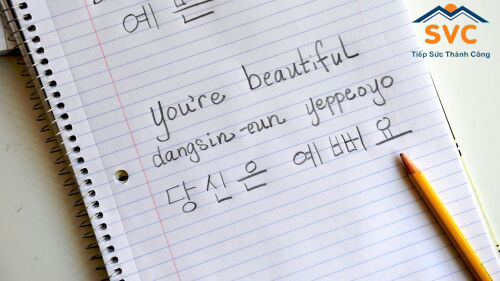 SVC
Tiếp Sức Thành Công
You're beautiful
dangsin-eun yeppeoyo
당신은 예뻐요